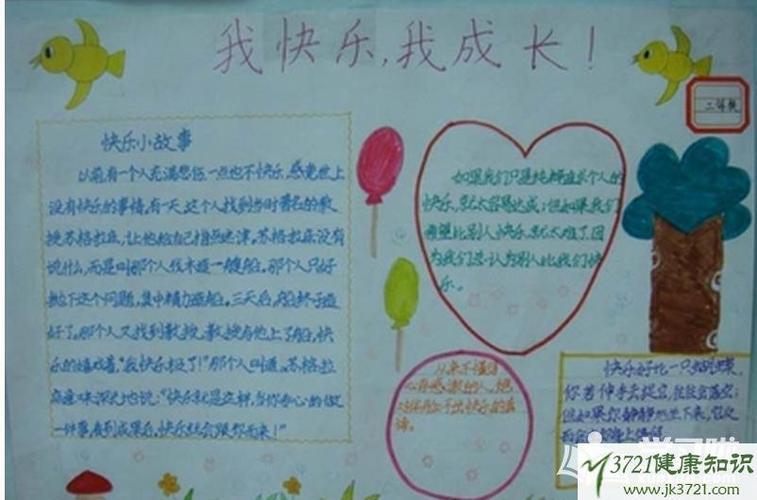 我快乐,我成长!
二年级
快乐小故事
以前有一个人充满悲伤一点也不快乐,感觉世上
没有快乐的事情,有一天,这个人找到当时著名的教
授苏格拉底,让他给自己指点迷津,苏格拉底没有
说什么,而是叫那个人伐木造一艘船。那个人只好
抛下这个问题,集中精力造船。三天后,船终于造
好了。那个人又找到教授,教授与他上了船,快
乐的嬉戏着"我快乐极了!"那个人叫道,苏格拉
底意味深长地说:"快乐就是这样,当你专心的做
一件事,看到成果后,快乐就会跟你而来!"
如果我们只是纯粹追求个人的
快乐,就太容易达成;但如果我们
希望比别人快乐,就太难了,因
为我们总认为别人比我们快
乐。
从来不懂得
心存感激的人,他
不出快乐的真
谛。
快乐好比一只蝴蝶,
你若伸手去捉它,往往会落空;
但如果你静静的坐下来,它反
而会
上
3721健康知识
www.jk3721.com